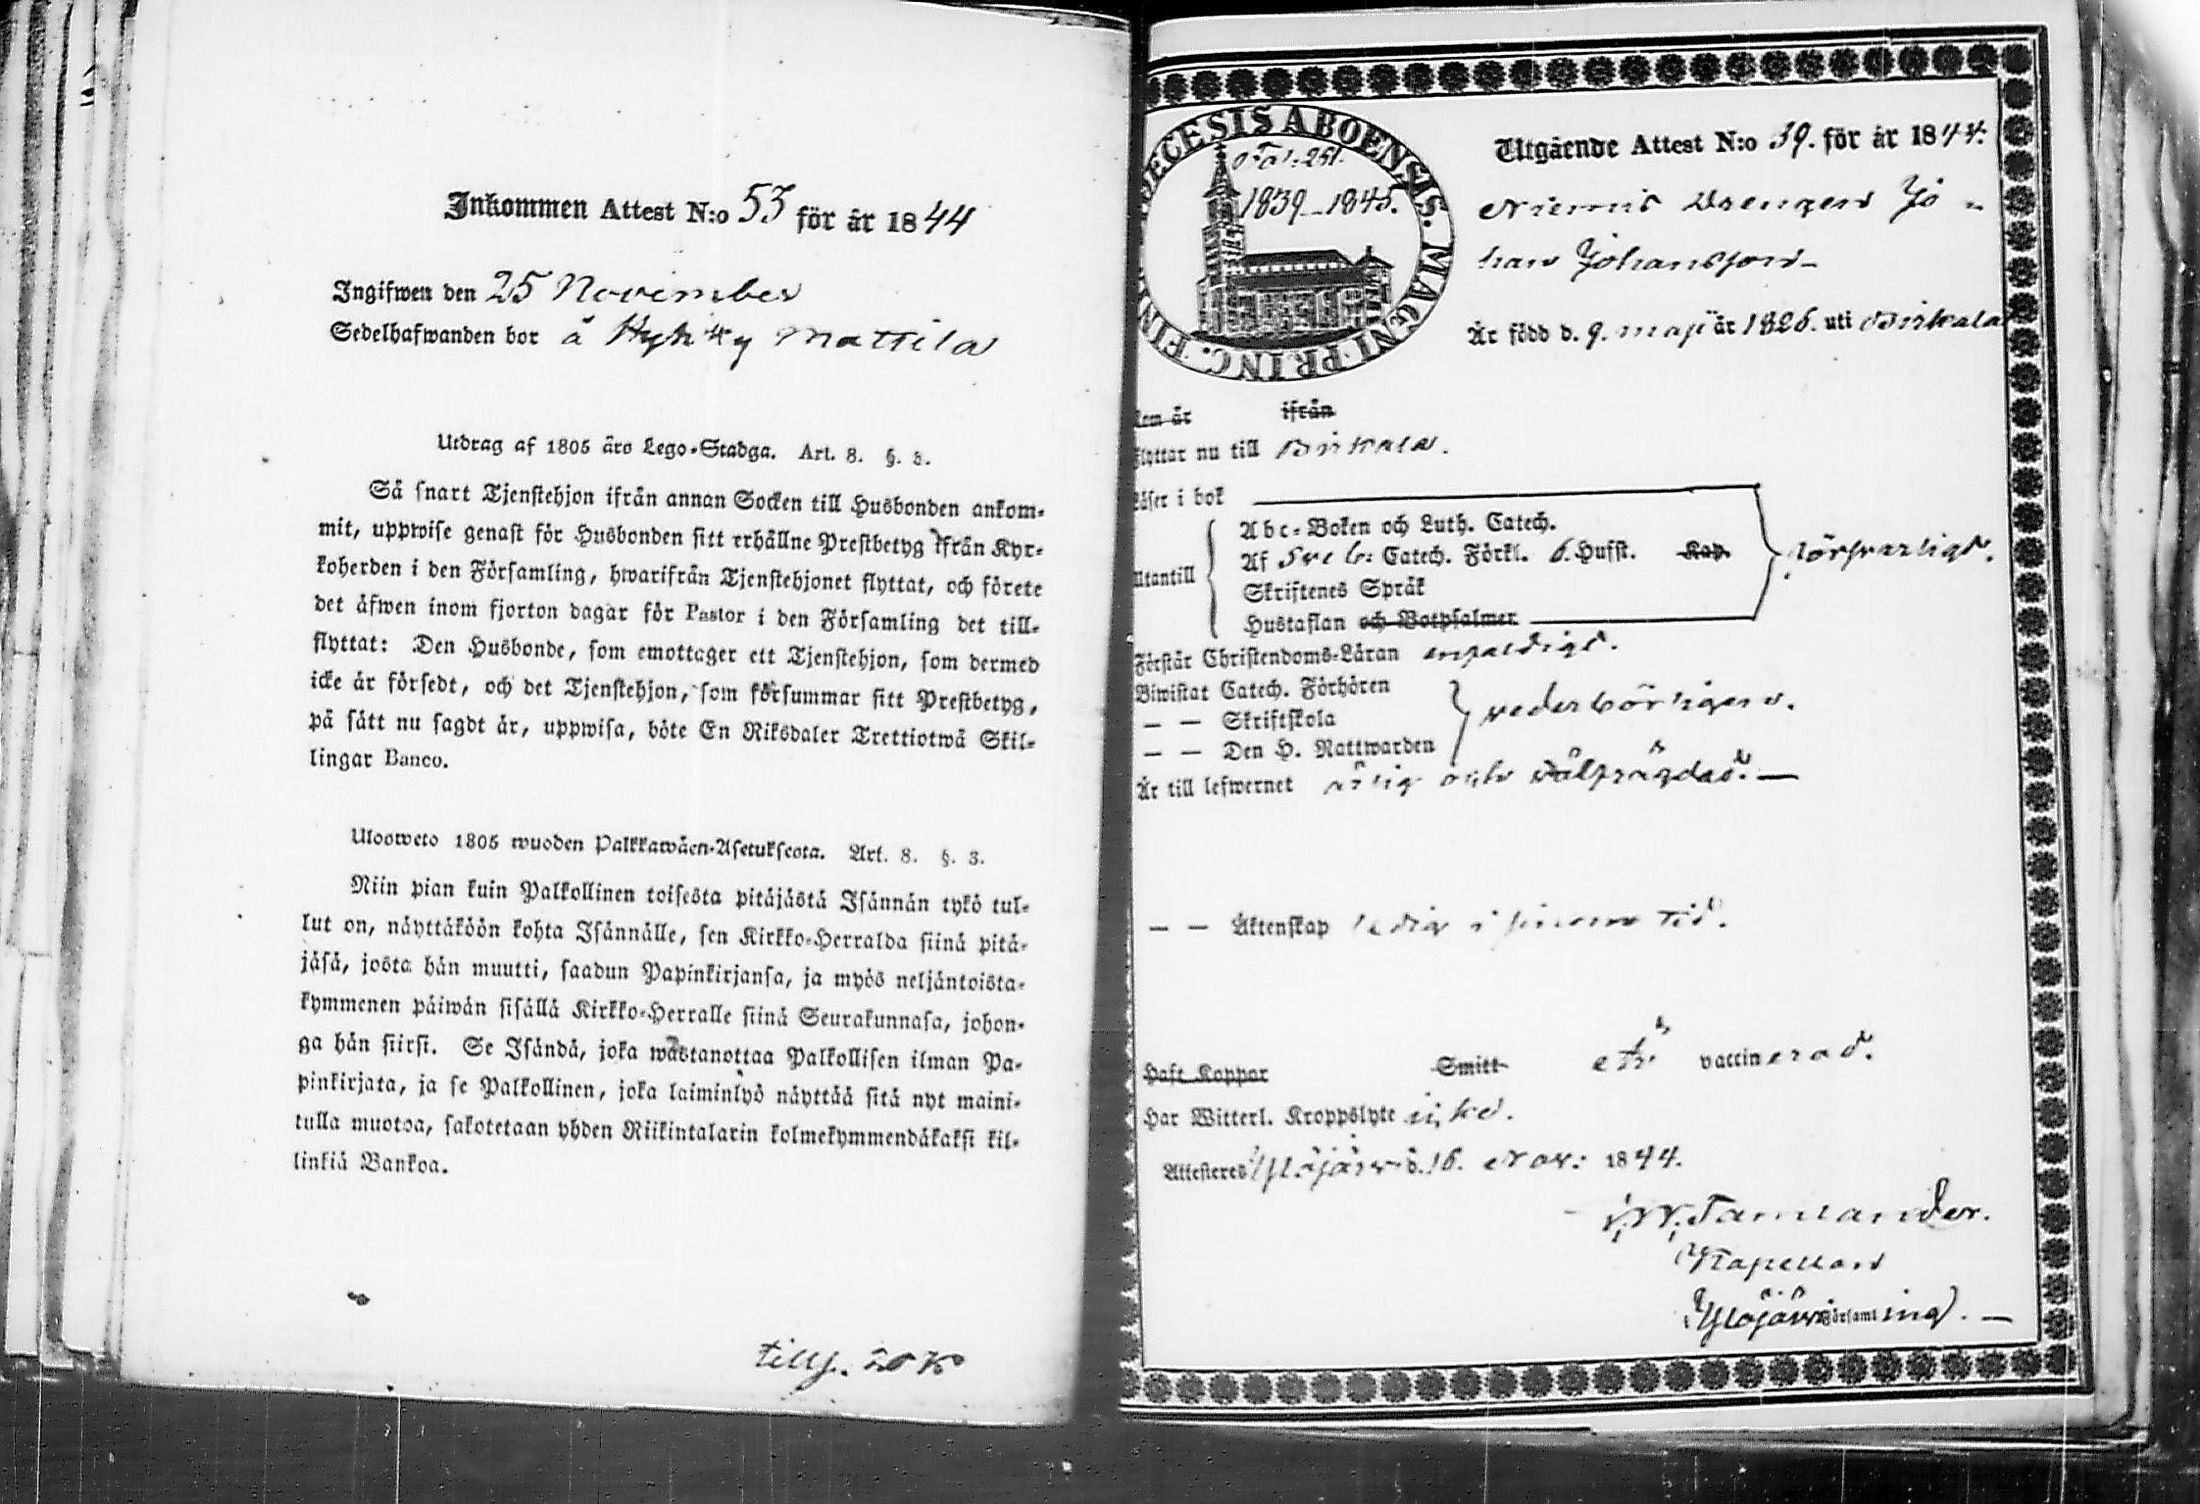 Inkommen Attest N:o 53 för år 1844
Ingifwen den 25 November
Sedelhafwanden bor å Hyhky Mattila
Utdrag af 1805 års Lego-Stadga. Art. 8. §. 3.
Så snart Tjenstehjon ifrån annan Socken till Husbonden ankom-
mit, uppwise genast för Husbonden sitt erhållne Prestbetyg ifrån Kyr-
koherden i den Församling, hwarifrån Tjenstehjonet flyttat, och förete
det äfwen inom fjorton dagar för Pastor i den Församling det till-
flyttat: Den Husbonde, som emottager ett Tjenstehjon, som dermed
icke är försedt, och det Tjenstehjon, som försummar sitt Prestbetyg,
på sätt nu sagdt är, uppwisa, böte En Riksdaler Trettiotwå Skil-
lingar Banco.
Uloswеto 1805 wuoden Palkkawäen-Asetuksesta. Art. 8. §. 3.
Niin pian kuin Palkollinen toisesta pitäjästä Isännän tykö tul-
lut on, näyttäköön kohta Isännälle, sen Kirkko-Herralda siinä pitä-
jäsä, josta hän muutti, saadun Papinkirjansa, ja myös neljäntoista-
kymmenen päiwän sisällä Kirkko-Herralle siinä Seurakunnasa, johon-
ga hän siirsi. Se Isändä, joka wastanottaa Palkollisen ilman Pa-
pinkirjata, ja se Palkollinen, joka laiminlyö näyttää sitä nyt maini-
tulla muotoa, sakotetaan yhden Riikintalarin kolmekymmendäkaksi kil-
linkiä Bankoa.
DIOECESIS ABOENSIS. MAGNI PRINC. FIN
Fol. 251.
1839-1845.
Utgående Attest N:o 39. för år 1844.
Niemis Drengen Jo-
han Johansson
Är född d. 9. maji år 1826. uti Birkala
Kom år ifrån
Flyttar nu till Birkala.
Läser i bok
Abc-Boken och Luth. Catech.
Af Sveb: Catech. Förkl. 6. Hufst. Kap.
Utantill
försvarligt.
Skriftenes Språk
Hustaflan och Botpsalmer
Förstår Christendoms-Läran enfaldigt.
Biwistat Catech. Förhören
— — Skriftskola
vederbörligen.
— — Den H. Nattwarden
Är till lefwernet ärlig och välfrägdad.
— — Äktenskap ledig i sinom tid.
Haft Koppor Smitt vaccinerad.
Har Witterl. Kroppslyte icke.
Attesteres Ylöjärvi d. 16. Nov: 1844.
Tamlander.
Kapellan
Ylöjärvi Församling.